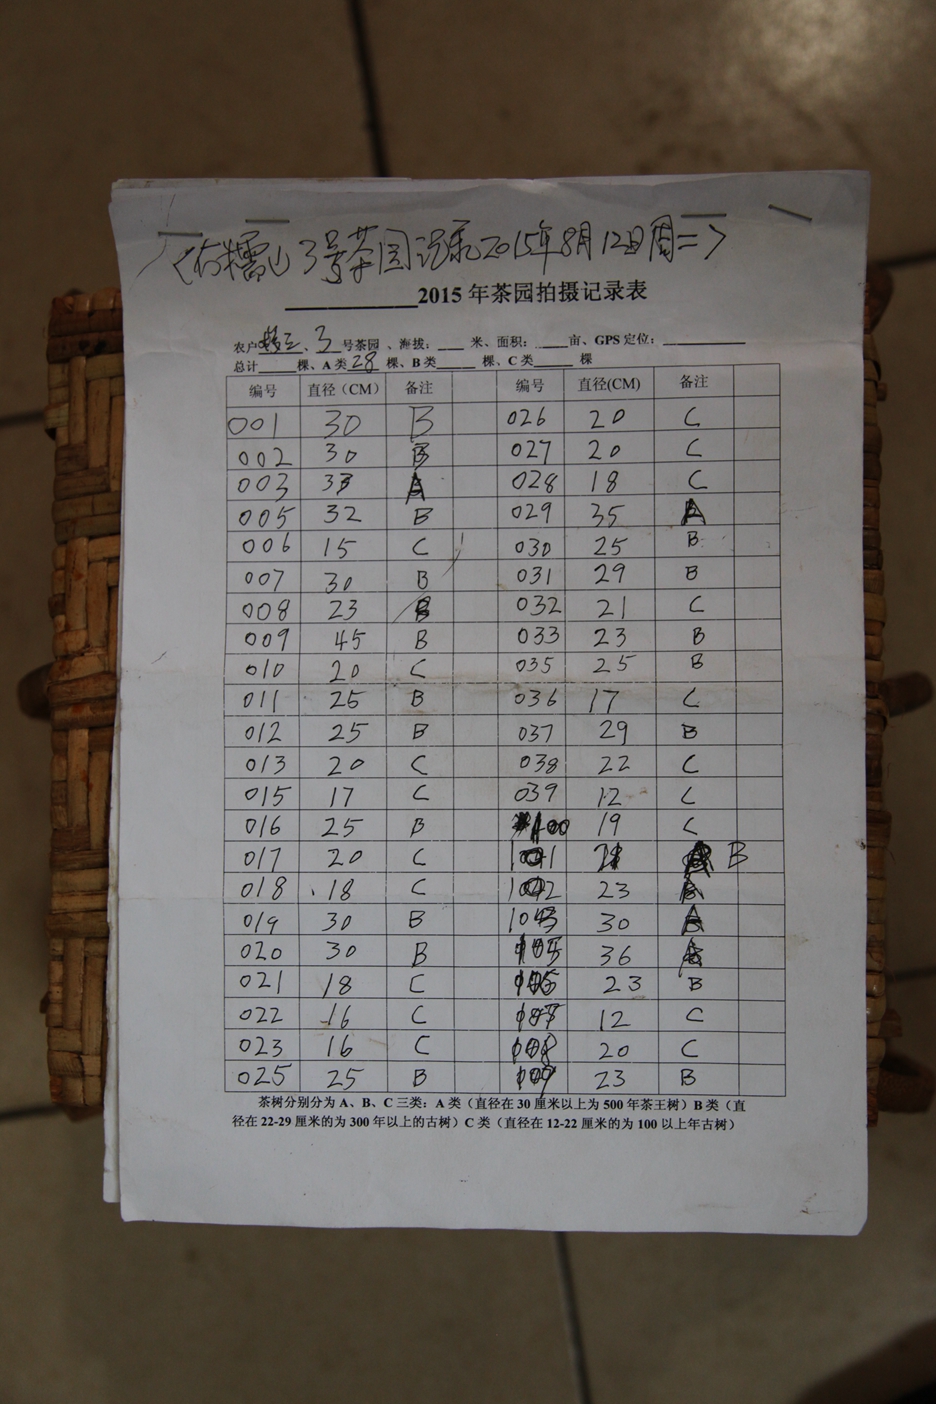 糯山3号茶园记录2015年8月12日周二
2015年茶园拍摄记录表
农户 、3号茶园、海拔: 米、面积: 亩、GPS定位:
总计 棵、A类28棵、B类 棵、C类 棵
编号 直径(CM) 备注 编号 直径(CM) 备注
001 30 B 026 20 C
002 30 B 027 20 C
003 33 A 028 18 C
005 32 B 029 35 A
006 15 C 030 25 B
007 30 B 031 29 B
008 23 B 032 21 C
009 45 B 033 23 B
010 20 C 035 25 B
011 25 B 036 17 C
012 25 B 037 29 B
013 20 C 038 22 C
015 17 C 039 12 C
016 25 B 100 19 C
017 20 C B
018 18 C 23
019 30 B 30 A
020 30 B 36
021 18 C 23 B
022 16 C 12 C
023 16 C 20 C
025 25 B 23 B
茶树分别分为A、B、C三类:A类(直径在30厘米以上为500年茶王树)B类(直
径在22-29厘米的为300年以上的古树)C类(直径在12-22厘米的为100以上年古树)